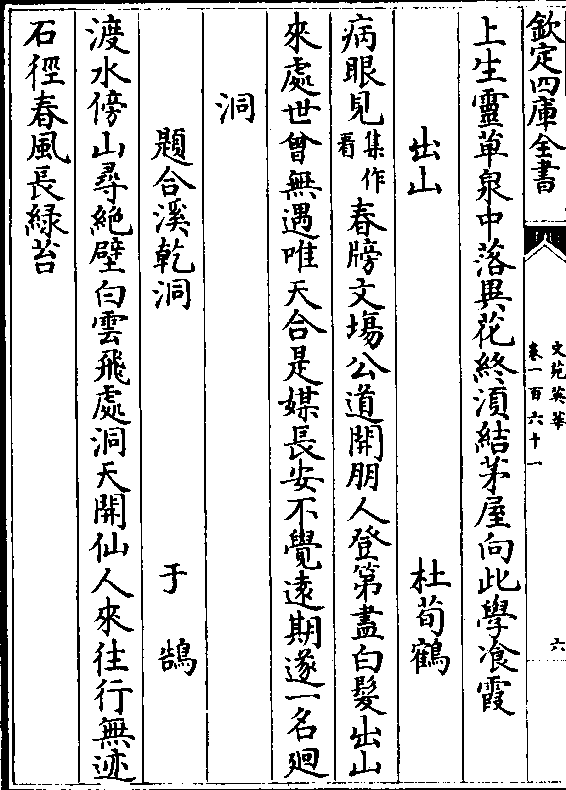 欽定四庫全書
文苑英華
卷一百六十一
六
上生靈草泉中落異花終須結茅屋向此學飡霞
出山 杜荀鶴
病眼見集作看春牓文塲公道開朋人登第盡白髮出山
來處世曾無遇唯天合是媒長安不覺遠期遂一名廻
洞
題合溪乾洞 于鵠
渡水傍山尋絶壁白雲飛處洞天開仙人來往行無迹
石徑春風長緑苔